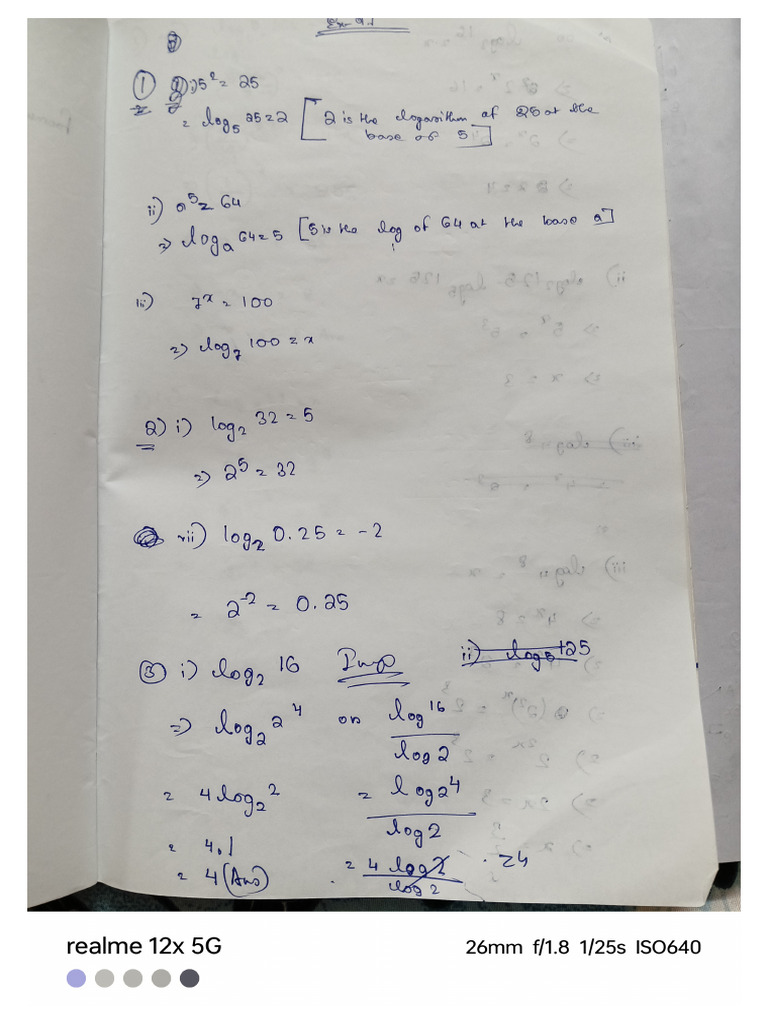 Ex 9.1
① i) 5² = 25
= log₅ 25 = 2 [2 is the logarithm of 25 at the
base of 5]
ii) a⁵ = 64
=> logₐ 64 = 5 [5 is the log of 64 at the base a]
iii) 7ˣ = 100
=> log₇ 100 = x
2) i) log₂ 32 = 5
=> 2⁵ = 32
vii) log₂ 0.25 = -2
= 2⁻² = 0.25
③ i) log₂ 16 Imp ii) log₅ 125
=> log₂ 2⁴ or log 16 / log 2
= 4 log₂ 2 = log 2⁴ / log 2
= 4.1
= 4 (Ans) = 4 log 2 / log 2 = 4
realme 12x 5G 26mm f/1.8 1/25s ISO640